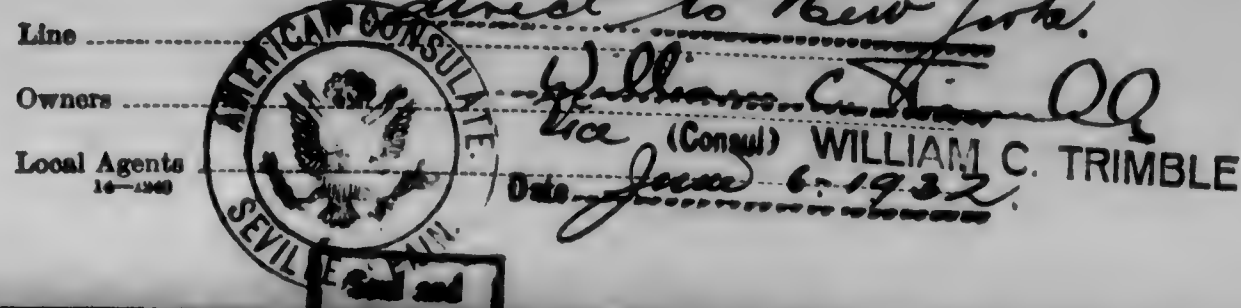 direct to New York.
Line
Owners
William C. Trimble
Vice (Consul) WILLIAM C. TRIMBLE
Local Agents
Date June 6-1932.
AMERICAN CONSULATE.
SEVILLE
Seal and